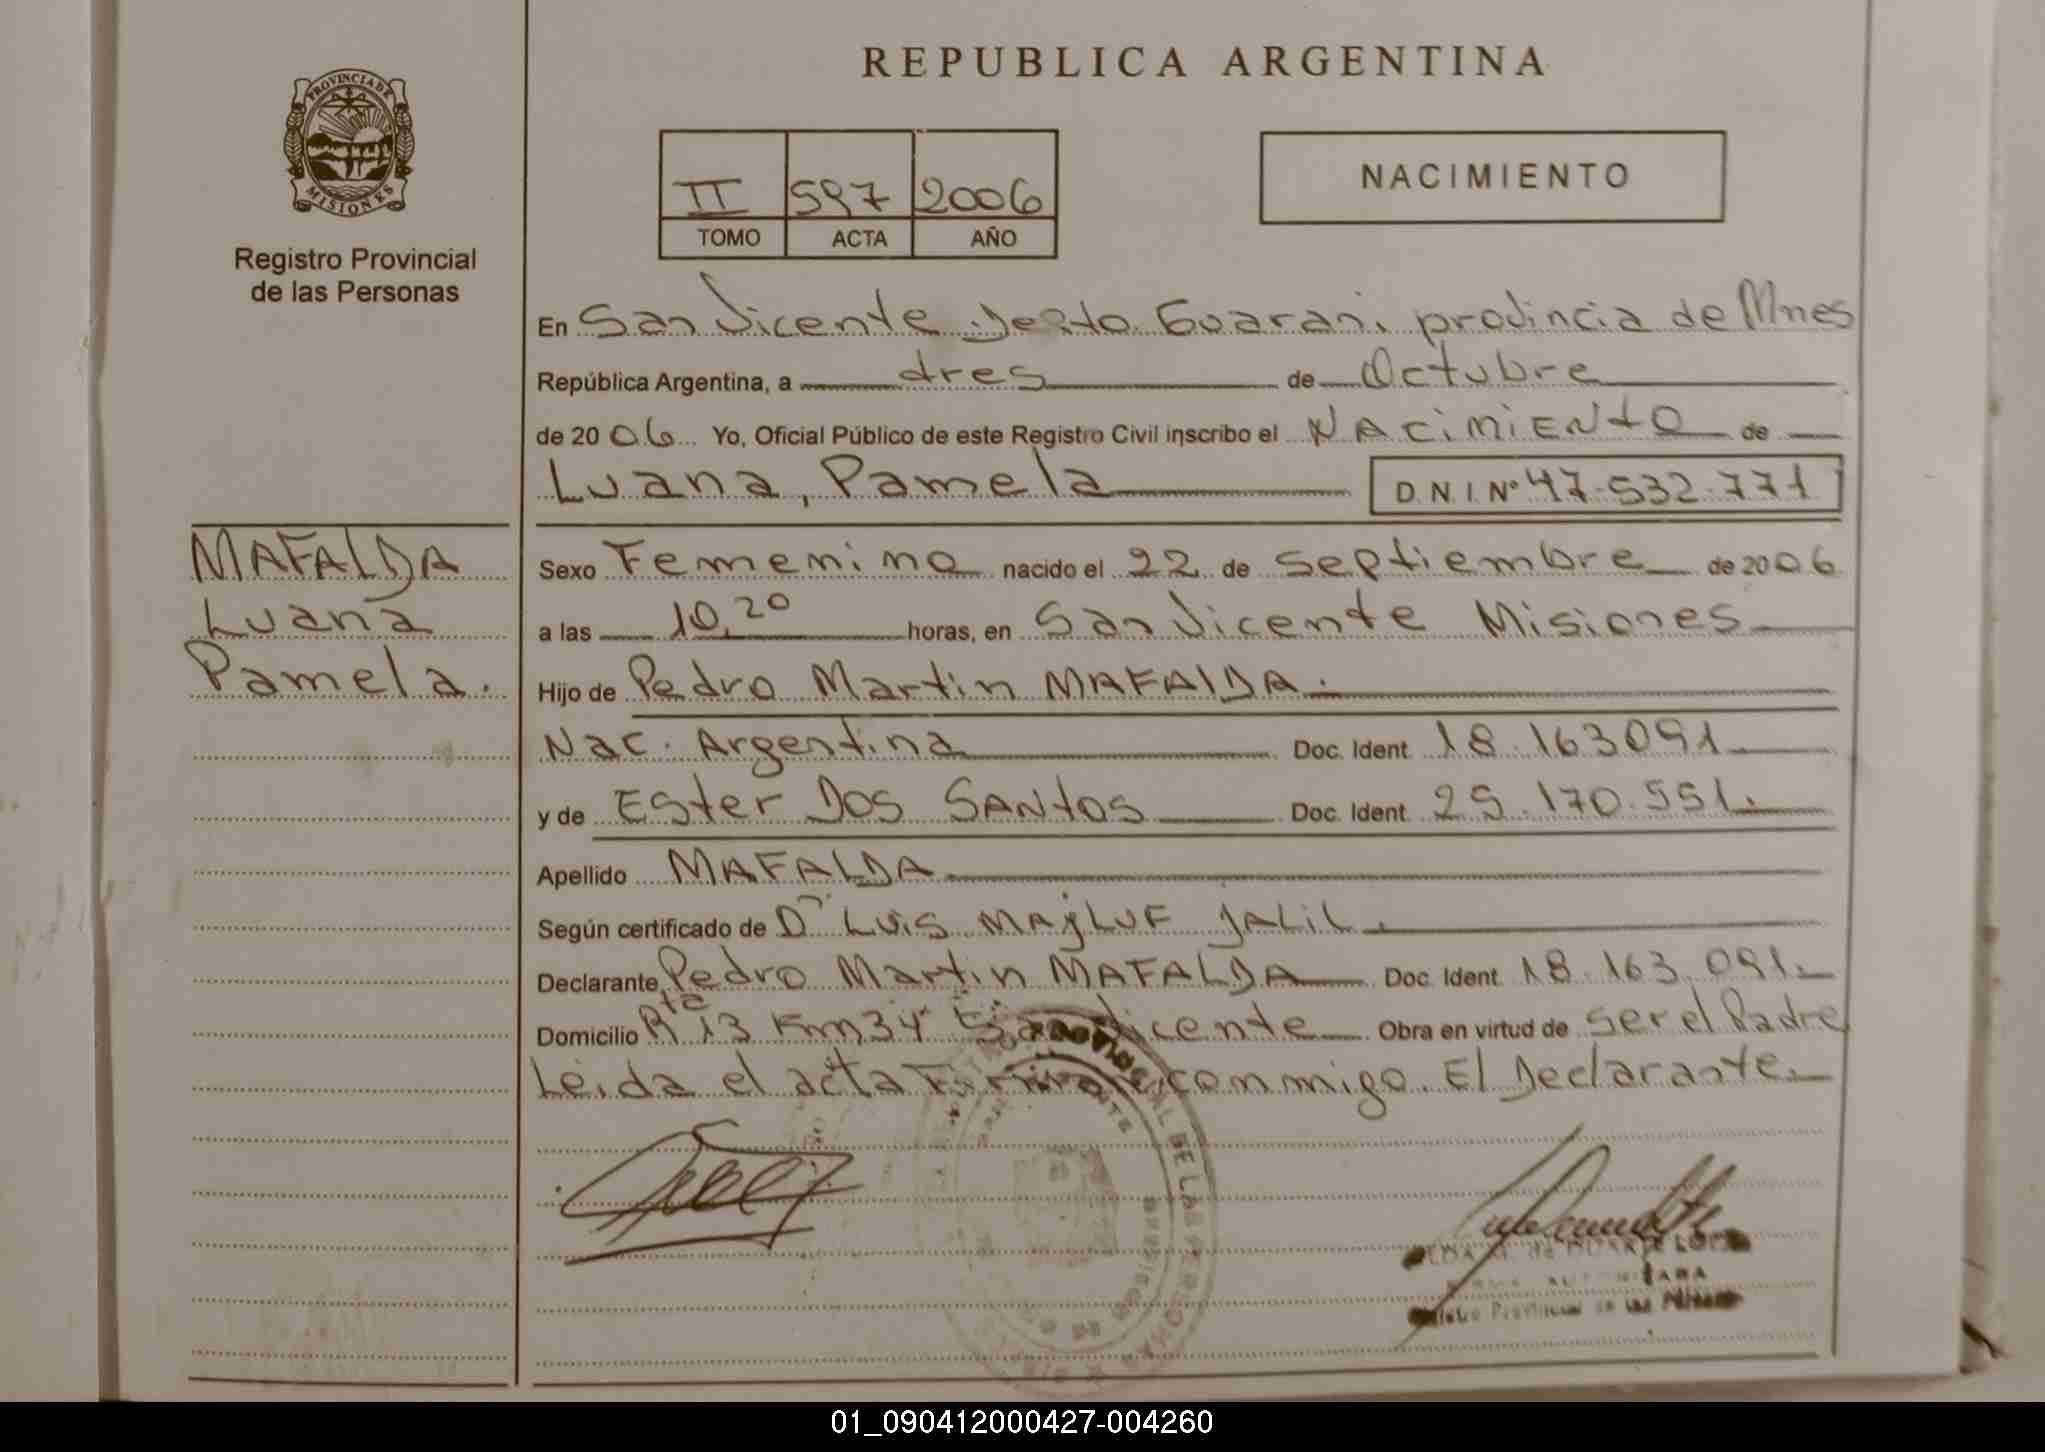 REPUBLICA ARGENTINA
PROVINCIA DE
MISIONES
Registro Provincial
de las Personas
II 597 2006
TOMO ACTA AÑO
NACIMIENTO
En San Vicente Depto Guarani provincia de Mnes
República Argentina, a tres de Octubre
de 2006 Yo, Oficial Público de este Registro Civil inscribo el NACIMIENTO de
Luana, Pamela D.N.I. Nº 47.532.771
MAFALDA
Luana
Pamela.
Sexo Femenino nacido el 22 de Septiembre de 2006
a las 10,20 horas, en San Vicente Misiones
Hijo de Pedro Martin MAFALDA.
Nac. Argentina Doc. Ident 18.163091
y de Ester Dos SANtos Doc. Ident. 25.170.551.
Apellido MAFALDA
Según certificado de Dr LUIS MAjLUF JALIL.
Declarante Pedro Martin MAFALDA Doc. Ident 18.163.091.
Domicilio Rta 13 Km 34 San Vicente Obra en virtud de ser el Padre
Leida el acta Firma conmigo El Declarante.
PROVINCIAL DE LAS PERSONAS
01_090412000427-004260